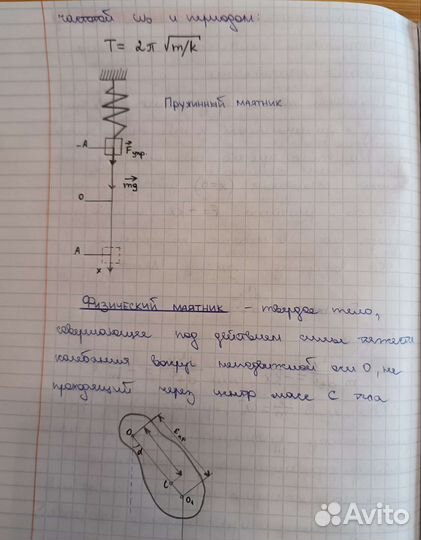 частотой ω₀ и периодом:
T = 2π √m/k
Пружинный маятник
-A
F упр.
mg
O
A
x
Физический маятник - твердое тело,
совершающее под действием силы тяжести
колебания вокруг неподвижной оси O, не
проходящий через центр масс C тела
O
lпр
α
C
O₁
Avito